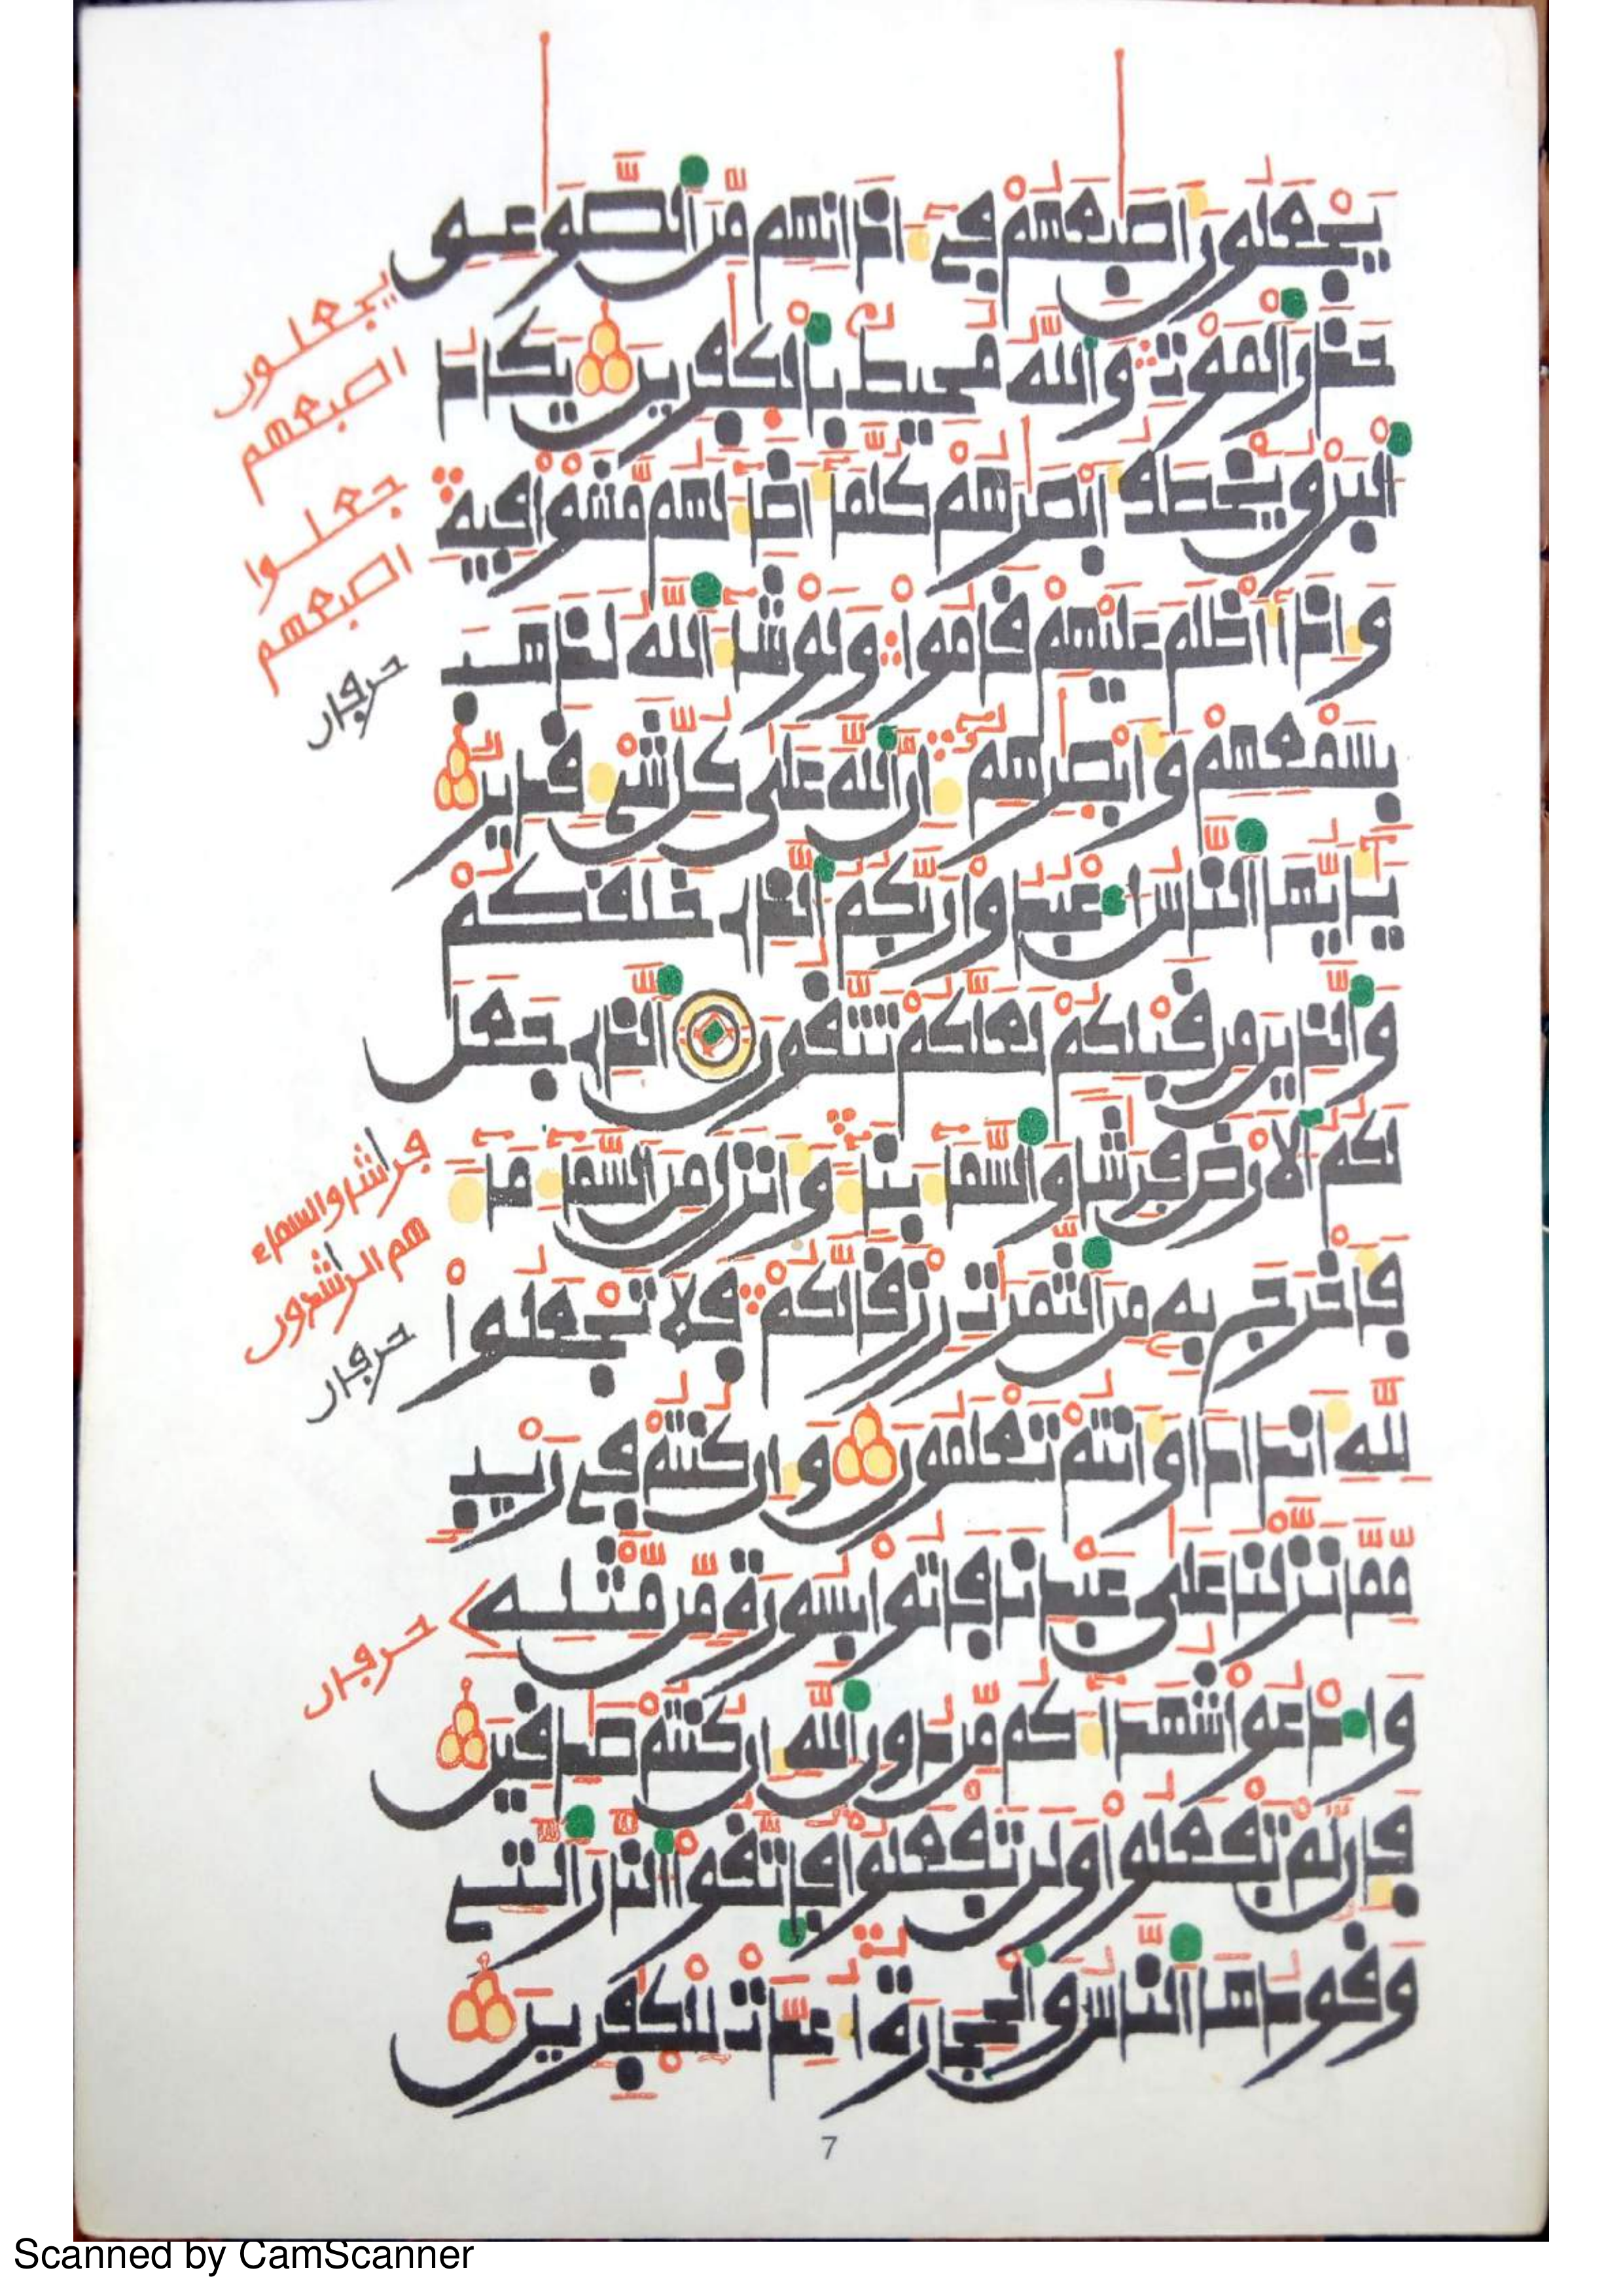 يجعلون أصبعهم في ءاذانهم من الصوعق
حذر الموت والله محيط بالكفرين يكاد
البرق يخطف أبصرهم كلما أضاء لهم مشوا فيه
وإذا أظلم عليهم قاموا ولو شاء الله لذهب
بسمعهم وأبصرهم إن الله على كل شيء قدير
يأيها الناس اعبدوا ربكم الذي خلقكم
والذين من قبلكم لعلكم تتقون الذي جعل
لكم الأرض فرشا والسماء بناء وأنزل من السماء ماء
فأخرج به من الثمرت رزقا لكم فلا تجعلوا
لله أندادا وأنتم تعلمون وإن كنتم في ريب
مما نزلنا على عبدنا فأتوا بسورة من مثله
وادعوا شهداءكم من دون الله إن كنتم صدقين
فإن لم تفعلوا ولن تفعلوا فاتقوا النار التي
وقودها الناس والحجارة أعدت للكفرين
يجعلون
اصبعهم
جعلوا
اصبعهم
حرفان
فراش والسماء
هم الرشدون
حرفان
حرفان
7
Scanned by CamScanner